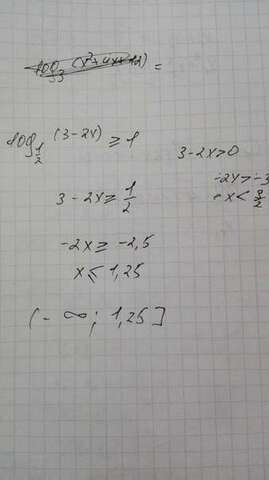 log₃ (x²+4x+12) =
log_{1/2} (3-2x) ≥ 1
3-2x>0
3-2x ≥ 1/2
-2x>-3
-x< 3/2
-2x ≥ -2,5
x ≤ 1,25
(-∞; 1,25]